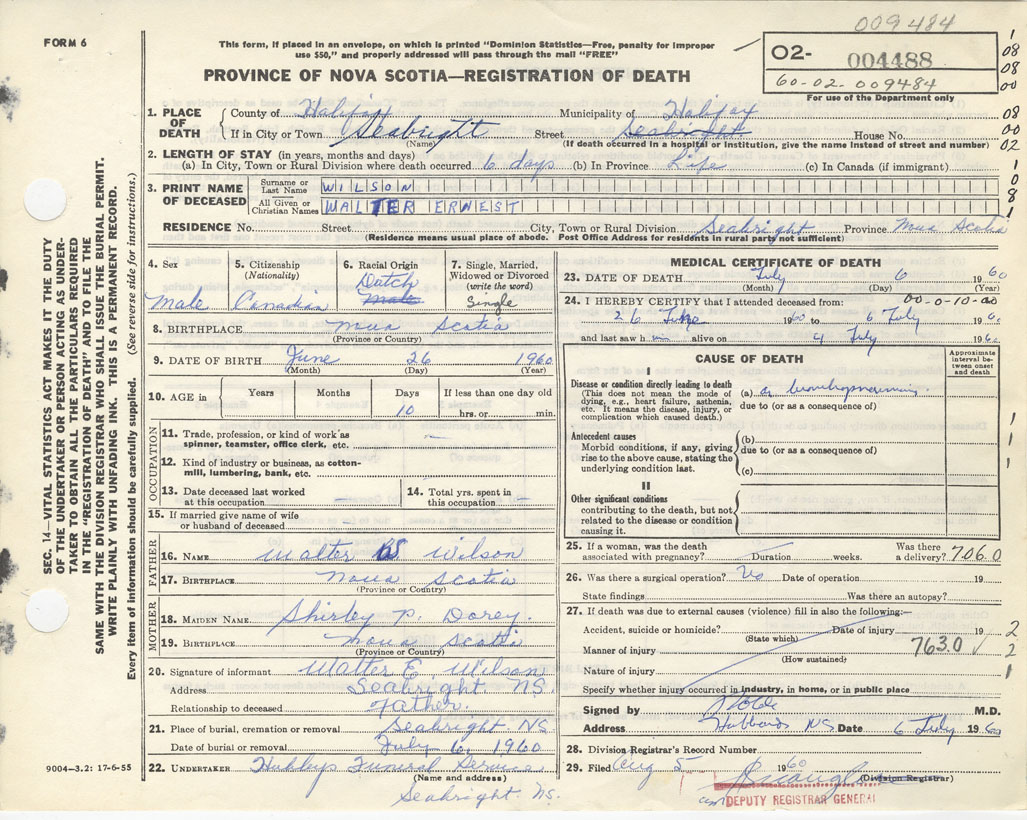 009484
FORM 6
This form, if placed in an envelope, on which is printed "Dominion Statistics—Free, penalty for improper
use $50," and properly addressed will pass through the mail "FREE"
O2- 004488
60-02-009484
For use of the Department only
PROVINCE OF NOVA SCOTIA—REGISTRATION OF DEATH
1. PLACE OF DEATH
County of Halifax Municipality of Halifax
If in City or Town Seabright Street Seabright House No.
(Name) (If death occurred in a hospital or Institution, give the name instead of street and number)
2. LENGTH OF STAY (in years, months and days)
(a) In City, Town or Rural Division where death occurred 6 days (b) In Province Life (c) In Canada (if immigrant)
3. PRINT NAME OF DECEASED
Surname or Last Name WILSON
All Given or Christian Names WALTER ERNEST
RESIDENCE No. Street City, Town or Rural Division Seabright Province Nova Scotia
(Residence means usual place of abode. Post Office Address for residents in rural part not sufficient)
4. Sex
Male
5. Citizenship
(Nationality)
Canadian
6. Racial Origin
Dutch
Male
7. Single, Married,
Widowed or Divorced
(write the word)
Single
8. BIRTHPLACE Nova Scotia
(Province or Country)
9. DATE OF BIRTH June 26 1960
(Month) (Day) (Year)
10. AGE in Years Months Days If less than one day
10 hrs. or min.
OCCUPATION
11. Trade, profession, or kind of work as
spinner, teamster, office clerk, etc. —
12. Kind of industry or business, as cotton-
mill, lumbering, bank, etc.
13. Date deceased last worked
at this occupation
14. Total yrs. spent in
this occupation
15. If married give name of wife
or husband of deceased
FATHER
16. NAME Walter Wilson
17. BIRTHPLACE Nova Scotia
(Province or Country)
MOTHER
18. MAIDEN NAME Shirley P. Dorey
19. BIRTHPLACE Nova Scotia
(Province or Country)
20. Signature of informant Walter E Wilson
Address Seabright NS.
Relationship to deceased Father.
21. Place of burial, cremation or removal Seabright NS
Date of burial or removal July 6, 1960
22. UNDERTAKER Hubleys Funeral Service
(Name and address)
Seabright. NS.
MEDICAL CERTIFICATE OF DEATH
23. DATE OF DEATH July 6 1960
(Month) (Day) (Year)
24. I HEREBY CERTIFY that I attended deceased from: 00-0-10-00
26 June 1960 to 6 July 1960
and last saw him alive on 4 July 1960
CAUSE OF DEATH
Approximate interval between onset and death
I
Disease or condition directly leading to death
(This does not mean the mode of
dying, e.g., heart failure, asthenia,
etc. It means the disease, injury, or
complication which caused death.)
(a) bronchopneumonia
due to (or as a consequence of)
Antecedent causes
Morbid conditions, if any, giving
rise to the above cause, stating the
underlying condition last.
(b)
due to (or as a consequence of)
(c)
II
Other significant conditions
contributing to the death, but not
related to the disease or condition
causing it.
25. If a woman, was the death
associated with pregnancy? Duration weeks. Was there
a delivery? 706.0
26. Was there a surgical operation? No Date of operation 19
State findings Was there an autopsy?
27. If death was due to external causes (violence) fill in also the following:—
Accident, suicide or homicide? Date of injury 19
(State which)
Manner of injury 763.0
(How sustained)
Nature of injury
Specify whether injury occurred in industry, in home, or in public place
Signed by M.D.
Address Hubbards NS Date 6 July 1960
28. Division Registrar's Record Number
29. Filed Aug 5 1960
(Division Registrar)
DEPUTY REGISTRAR GENERAL
SEC. 14—VITAL STATISTICS ACT MAKES IT THE DUTY
OF THE UNDERTAKER OR PERSON ACTING AS UNDER-
TAKER TO OBTAIN ALL THE PARTICULARS REQUIRED
IN THE "REGISTRATION OF DEATH" AND TO FILE THE
SAME WITH THE DIVISION REGISTRAR WHO SHALL ISSUE THE BURIAL PERMIT.
WRITE PLAINLY WITH UNFADING INK. THIS IS A PERMANENT RECORD.
Every item of information should be carefully supplied. (See reverse side for instructions.)
9004—3.2: 17-6-55
1
08
08
00
08
02
1
0
8
1
1
1
1
2
2
1